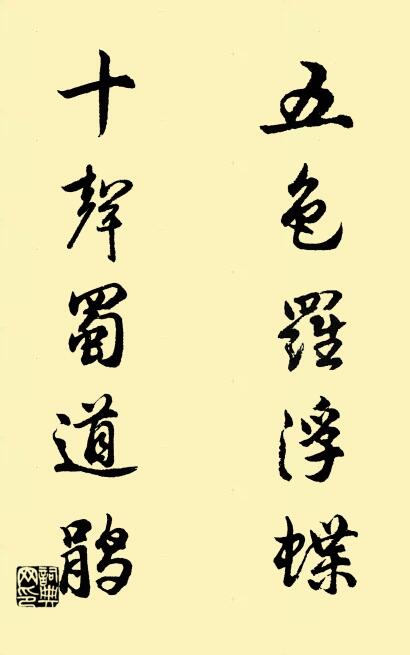 五色羅浮蝶
十聲蜀道鵑
詞典網印